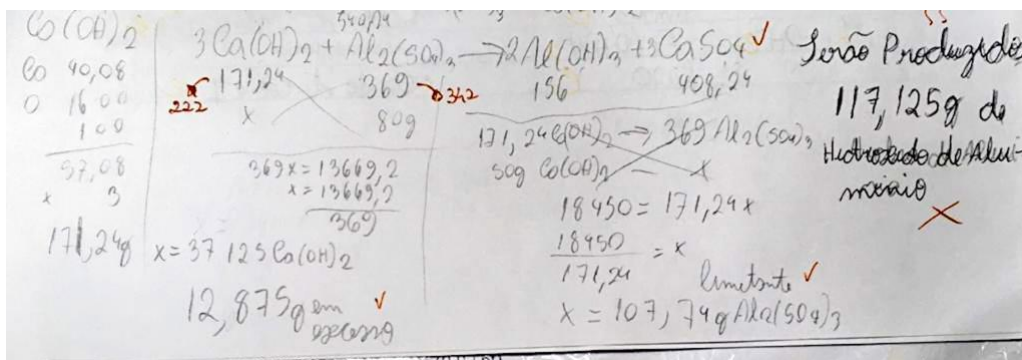 Co(OH)2
Co 40,08
O 16 00
1 00
57,08
x 3
171,24g
3Ca(OH)2 + Al2(SO4)3 → 2Al(OH)3 + 3CaSO4 ✓
171,24 369 156 408,24
222 342
x 80g
369x = 13669,2
x = 13669,2
369
x = 37 125 Co(OH)2
12,875g em excesso ✓
171,24 Co(OH)2 → 369 Al2(SO4)3
50g Co(OH)2 — x
18450 = 171,24x
18450 = x
171,24
limitante ✓
x = 107,74g Al2(SO4)3
Serão Produzido
117,125g de
Hidroxido de Alu-
minio
X